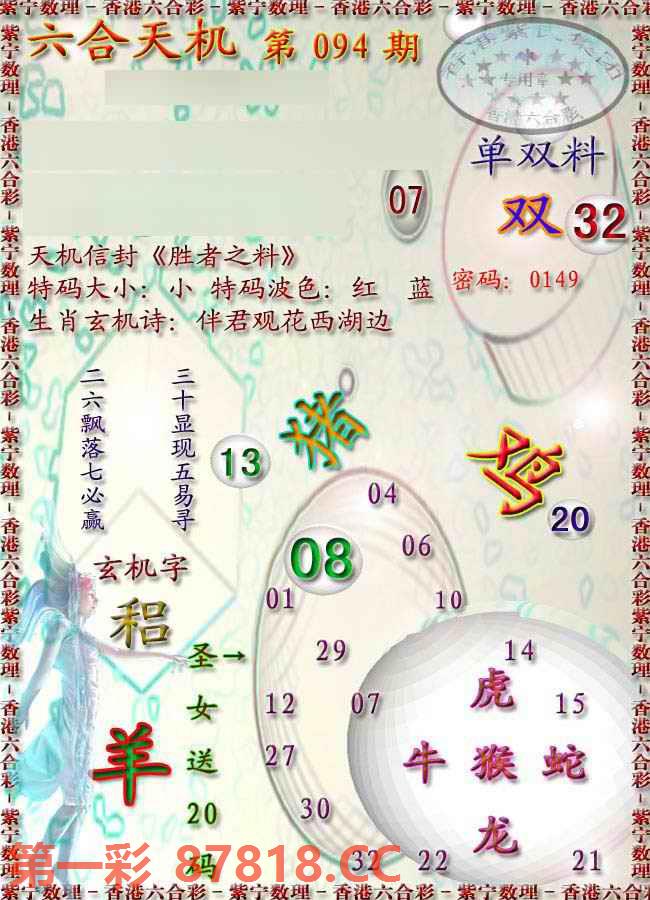 紫宁数理－香港六合彩－紫宁数理－香港六合彩－紫宁数理－香港六合彩
六合天机 第 094 期
专用章
香港六合彩
单双料
07
双 32
天机信封《胜者之料》
特码大小：小 特码波色：红 蓝
密码：0149
生肖玄机诗：伴君观花西湖边
三十显现五易寻
二六飘落七必赢
猪
13
鸡
20
04
08
06
玄机字
01
10
29
14
圣→
女
送
20
码
12
07
虎
15
羊
27
牛 猴 蛇
30
龙
32
22
21
第一彩 87818.CC
紫宁数理－香港六合彩－紫宁数理－香港六合彩－紫宁数理－香港六合彩